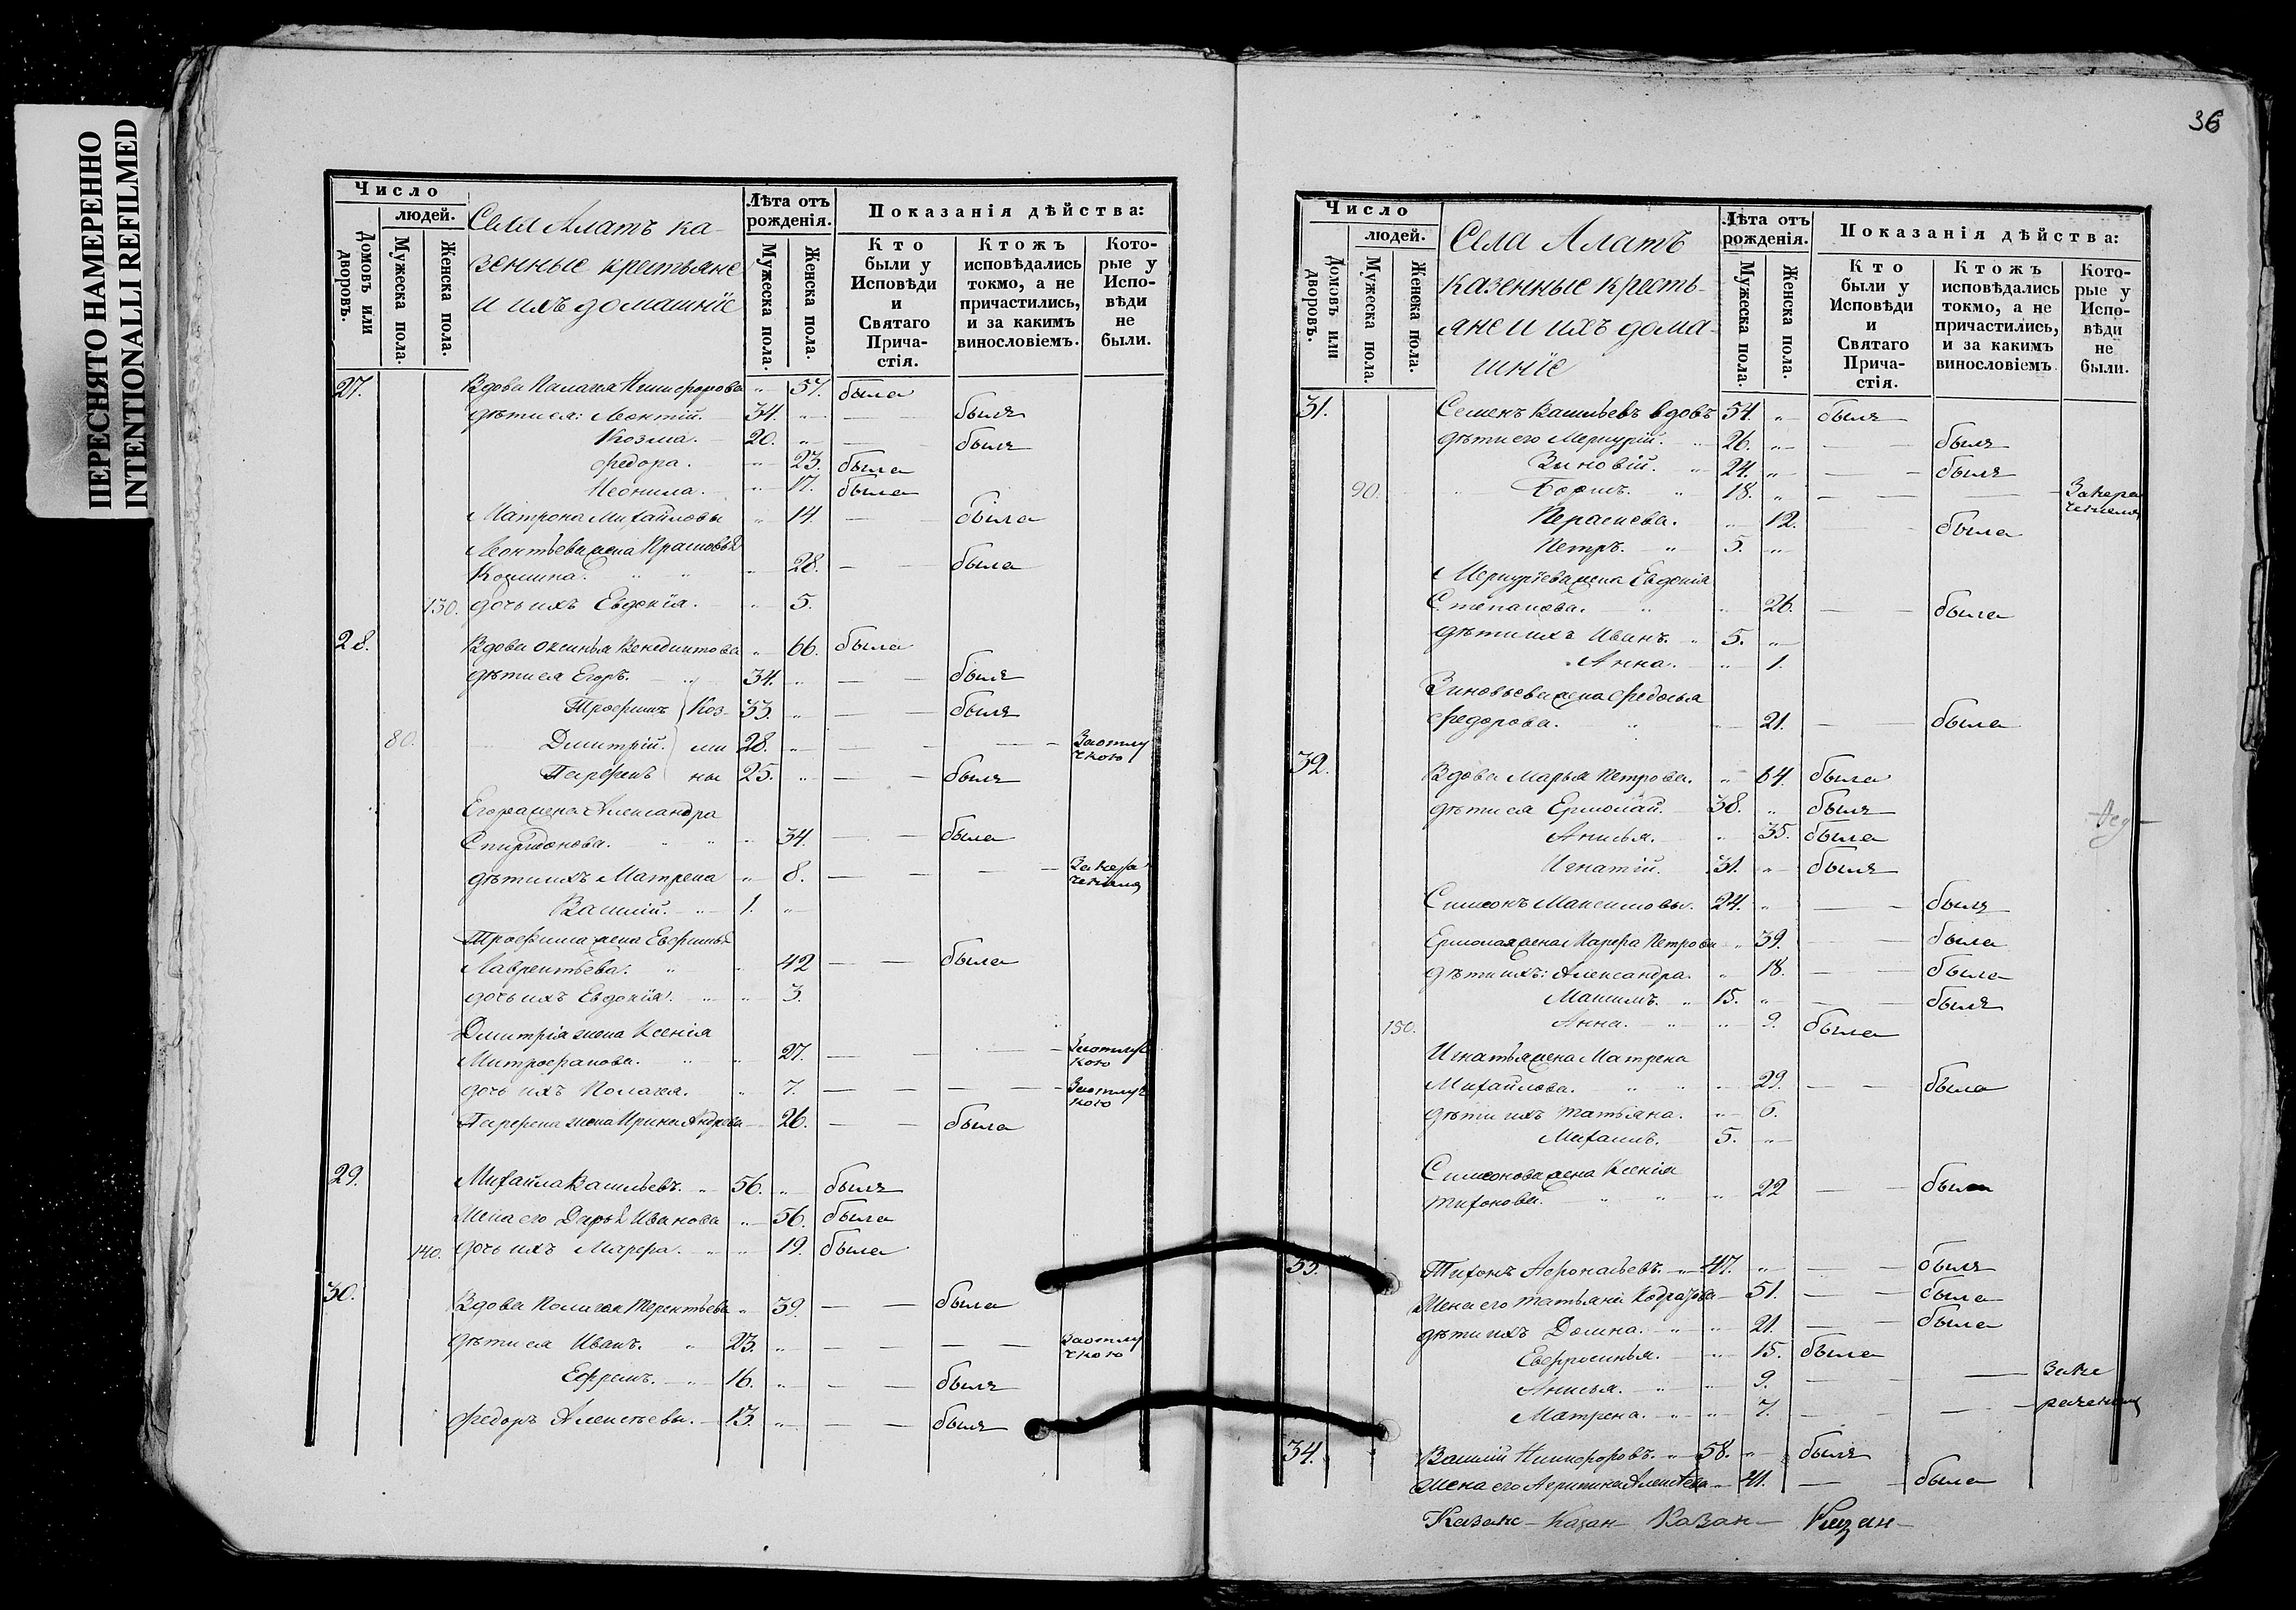 ПЕРЕСНЯТО НАМЕРЕННО
INTENTIONALLI REFILMED
Число
людей.
Домовъ или дворовъ.
Мужеска пола.
Женска пола.
Села Алатъ ка-
зенные крестьяне
и ихъ домашніе
Лѣта отъ рожденія.
Мужеска пола.
Женска пола.
Показанія дѣйства:
Кто были у Исповѣди и Святаго Прича-стія.
Ктожъ исповѣдались токмо, а не причастились, и за какимъ винословіемъ.
Кото-рые у Испо-вѣди не были.
27. Вдова Палагея Никифорова " 57. была
дѣти ея: Леонтій. 34. " — — былъ
Козма. 20. " — — былъ
Федора. " 23. была
Неонила. " 17. была
Матрона Михайловы " 14. — — была
Леонтьева жена Прасковья
Козмина. " " " 28. — — была
130. дочь ихъ Евдокія. " 5.
28. Вдова Оксинья Венедиктова " 66. была
дѣти ея Егоръ. " 34. " — — былъ
Трофимъ Коз- 33. " — — былъ
80. Дмитрій. ми 28. " — — — За отлу
чкою
Парфенъ ны 25. " — — былъ
Егора жена Александра
Спиридонова. " " " 34. — — была
дѣти ихъ Матрена " 8. — — — —
Василій. " 1. "
Трофима жена Евфимья
Лаврентьева. " " 42 — — была
дочь ихъ Евдокія. " " 3.
Дмитрія жена Ксенія
Митрофанова. " " 27. — — — За отлуч
кою
дочь ихъ Полагея. " 7. — — — — За отлуч
кою
Парфена жена Ирина " 26. — — была
29. Михайла Васильевъ. " 56. " былъ
Жена его Дарья Иванова " 56. была
140. дочь ихъ Марфа. " " 19. была
30. Вдова Полагея Терентьева " 39. — — была
дѣти ея Иванъ. " 23. " — — — — За отлу
чкою
Ефремъ. " 16. " — — былъ
Федоръ Алексѣевы. 13. " — — былъ
36
Число
людей.
Домовъ или дворовъ.
Мужеска пола.
Женска пола.
Села Алатъ
казенные кресть-
яне и ихъ дома-
шніе
Лѣта отъ рожденія.
Мужеска пола.
Женска пола.
Показанія дѣйства:
Кто были у Исповѣди и Святаго Прича-стія.
Ктожъ исповѣдались токмо, а не причастились, и за какимъ винословіемъ
Кото-рые у Испо-вѣди не были.
31. Семенъ Васильевъ вдовъ 54. " былъ
дѣти его Меркурій. " 26. " — — былъ
Зиновій. " 24. " — — былъ
90. " Борисъ. " 18. " — — —
" 12. — — была
Петръ. " 5. "
Меркурьева жена Евдокія
Степанова. " " 26. — — была
дѣти ихъ Иванъ. " 5. "
Анна. " 1.
Зиновьева жена Федосья
Федорова. " " 21. — — была
32. Вдова Марья Петрова. " 64. была
дѣти ея Ермолай. 38. " былъ
Анисья. " 35. была
Игнатій. 31. " былъ
Симеонъ Максимовы. 24. " — — былъ
Ермолая жена Марфа Петрова " 39. — — была
дѣти ихъ: Александра. " 18. — — была
Максимъ. " 15. " — — былъ
150. Анна. " " 9. была
Игнатья жена Матрена
Михайлова. " " " 29. — — была
дѣти ихъ Татьяна. " 6.
Михаилъ. 5. "
Симеонова жена Ксенія
Тихонова. " " " 22 — — была
33. Тихонъ Афонасьевъ. " 47. " — — былъ
Жена его Татьяна " 51. — — была
дѣти ихъ Домна. " " 21. — — была
Евфросинья. " 15. была
Анисья. " " 9. — — —
Матрена. " " 7. — — —
34. Василій Никифоровъ. " 58. " былъ
Жена его Агрипина Алексѣева " 41. — — была
Казанс- Казан- Казан- Казан-